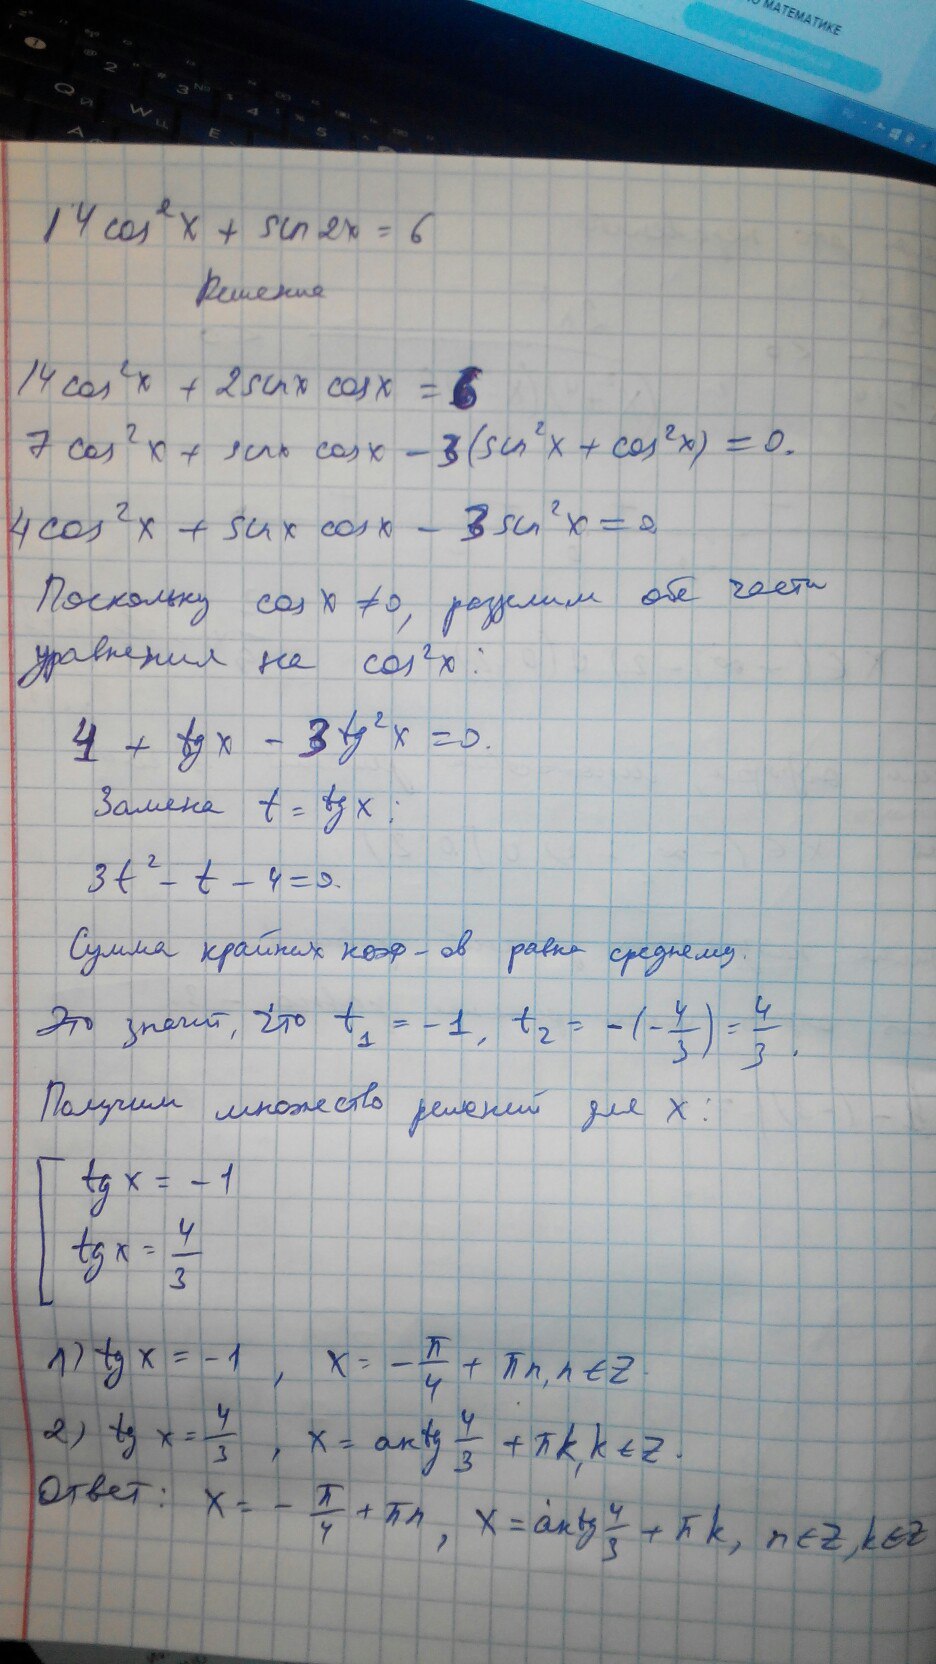 О МАТЕМАТИКЕ
14 cos²x + sin 2x = 6
Решение
14 cos²x + 2 sin x cos x = 6
7 cos²x + sin x cos x - 3(sin²x + cos²x) = 0.
4 cos²x + sin x cos x - 3 sin²x = 0
Поскольку cos x ≠ 0, разделим обе части
уравнения на cos²x:
4 + tg x - 3 tg²x = 0.
Замена t = tg x:
3t² - t - 4 = 0.
Сумма крайних коэф-ов равна среднему.
Это значит, что t₁ = -1, t₂ = -(-4/3) = 4/3.
Получим множество решений для x:
[ tg x = -1
tg x = 4/3
1) tg x = -1, x = -π/4 + πn, n ∈ Z.
2) tg x = 4/3, x = arctg 4/3 + πk, k ∈ Z.
Ответ: x = -π/4 + πn, x = arctg 4/3 + πk, n ∈ Z, k ∈ Z